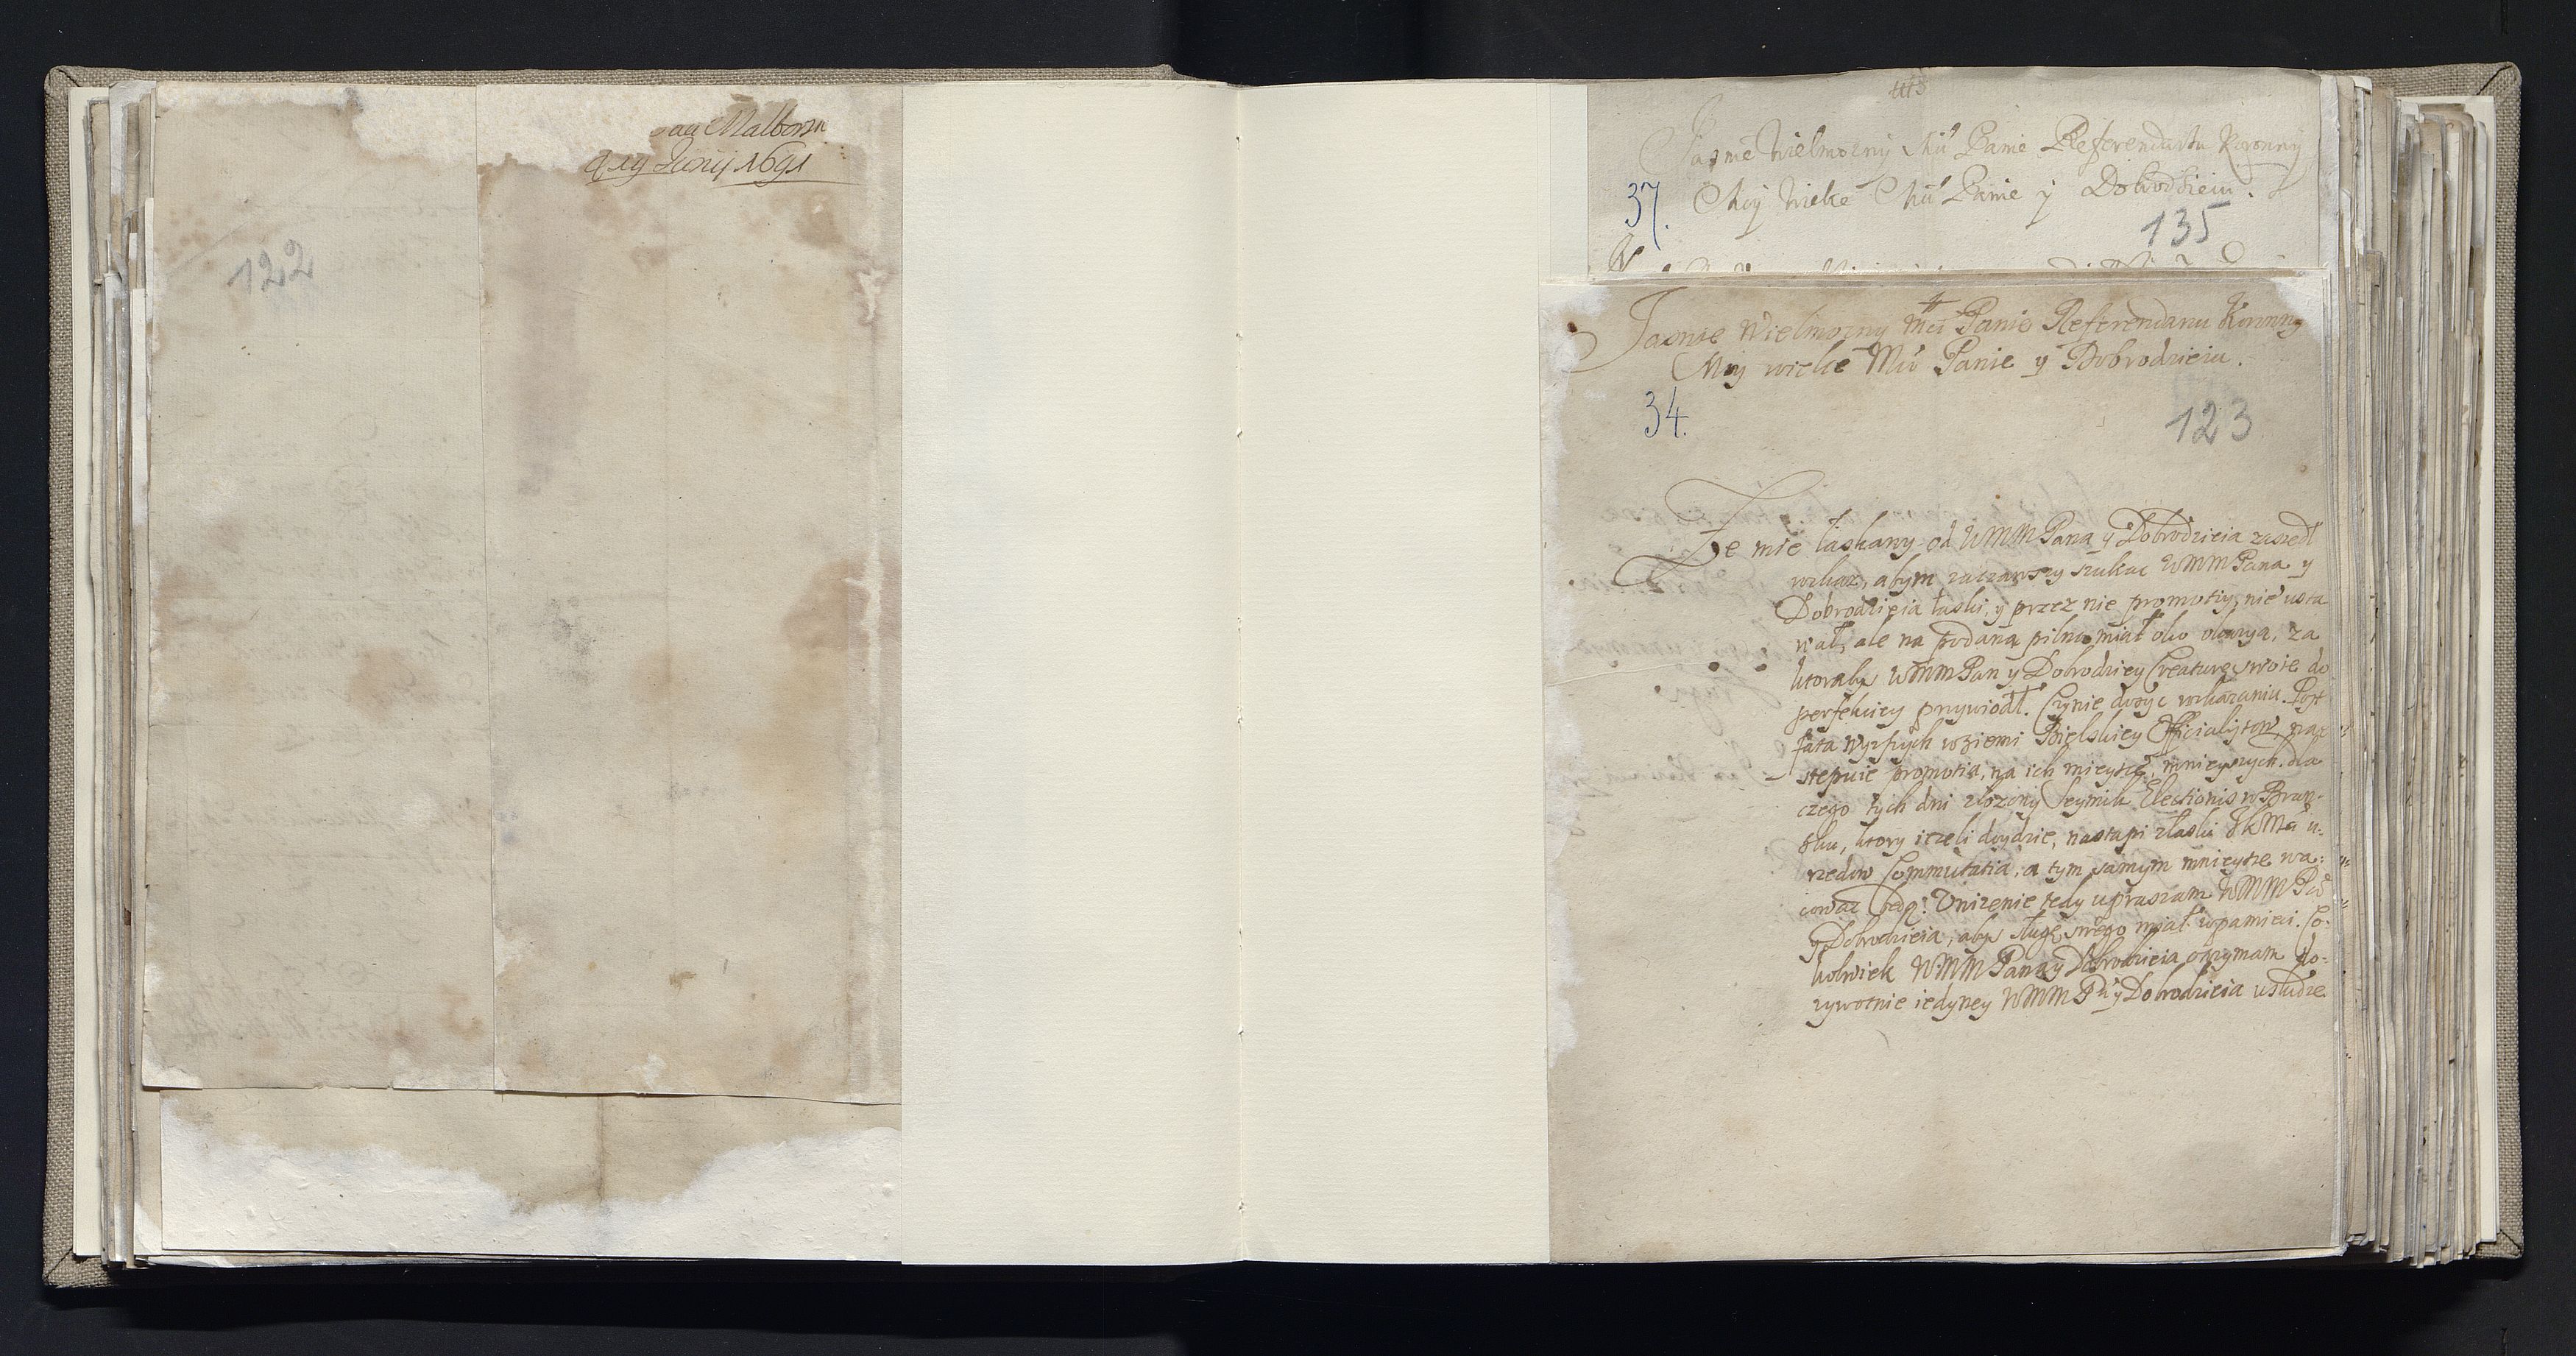 Malbork
d 19 Junij 1691
122
Jasnie Wielmozny Mci Panie Referendarzu Koronny
37. Moy Wielce Mci Panie y Dobrodzieiu.
135
Jasnie Wielmozny Mci Panie Referendarzu Koronny
Moy wielce Mci Panie y Dobrodzieiu.
34.
123
Ze mie łaskawy od WMM Pana y Dobrodzieia zaszedł
rozkaz, abym zaczawszy szukac WMM Pana y
Dobrodzieia łaski, y przez nie promotiy, nie usta
wał, ale na podaną pilno miał oko okazyą, za
ktoraby WMM Pan y Dobrodziey Creaturę swoię do
perfekciey przywiodł. Czynie dosyc rozkazaniu. Post
fata wyzszych w ziemi Bielskiey Officialistow, nas
stępuie promotia, na ich mieysce, mnieyszych. dla
czego tych dni złozony Seymik Electionis w Bran-
sku, ktory iezeli doydzie, nastąpi z łaski JKMci u-
rzedow Commutatia, a tym samym mnieysze wa:
cowac będą. Unizenie tedy upraszam WMM Pa
y Dobrodzieia, aby sługę swego miał w pamięci. Co-
kolwiek WMM Pana y Dobrodzieia otrzymam do-
zywotnie iedyney WMM Pa y Dobrodzieia usłudze